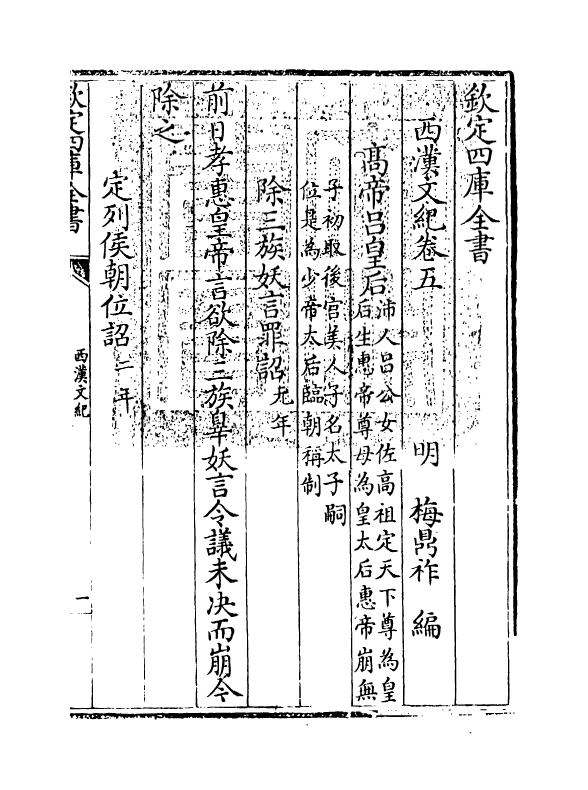 欽定四庫全書
西漢文紀卷五
明 梅鼎祚 編
高帝呂皇后
沛人呂公女佐高祖定天下尊為皇
后生惠帝尊母為皇太后惠帝崩無
子初取後宮美人子名太子嗣
位是為少帝太后臨朝稱制
除三族妖言罪詔元年
前日孝惠皇帝言欲除三族辠妖言令議未决而崩今
除之
定列侯朝位詔二年
欽定四庫全書
西漢文紀
一